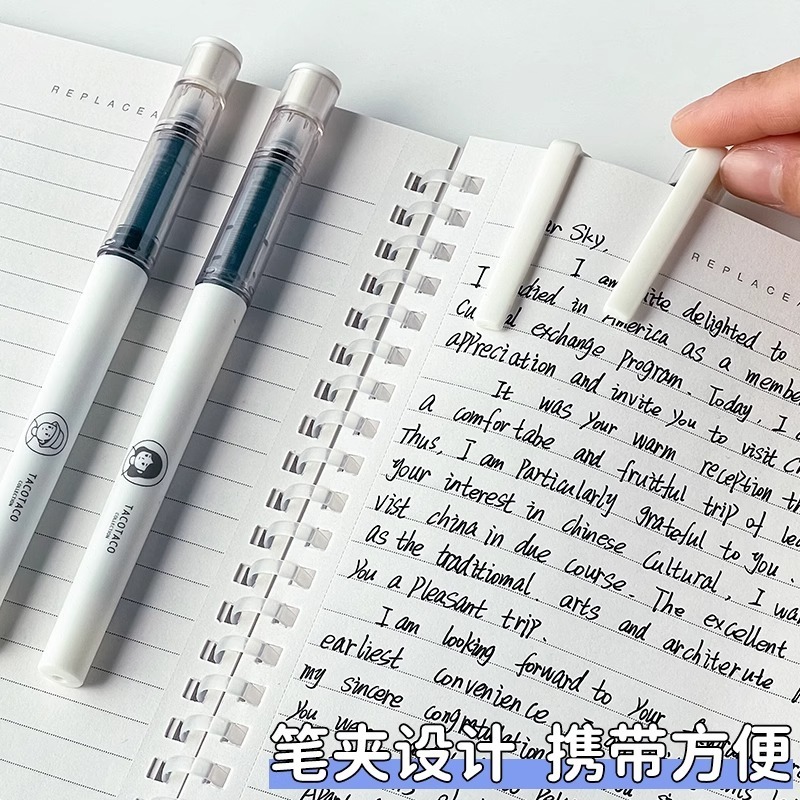 REPLACEA
TACOTACO
COLLECTION
TACOTACO
COLLECTION
REPLACEA
Sky,
I am delighted to
I in America as a membe
exchange program. Today, I
appreciation and invite you to visit
It was your warm reception th
a comfortabe and fruitful trip of
Thus, I am particularly grateful to you.
your interest in chinese Cultural, I wa
vist china in due course. The excellent
as the traditional. arts and architerute
You a pleasant trip.
I am looking forward to your
earliest convenience
my sincere congratulation
You
笔夹设计 携带方便